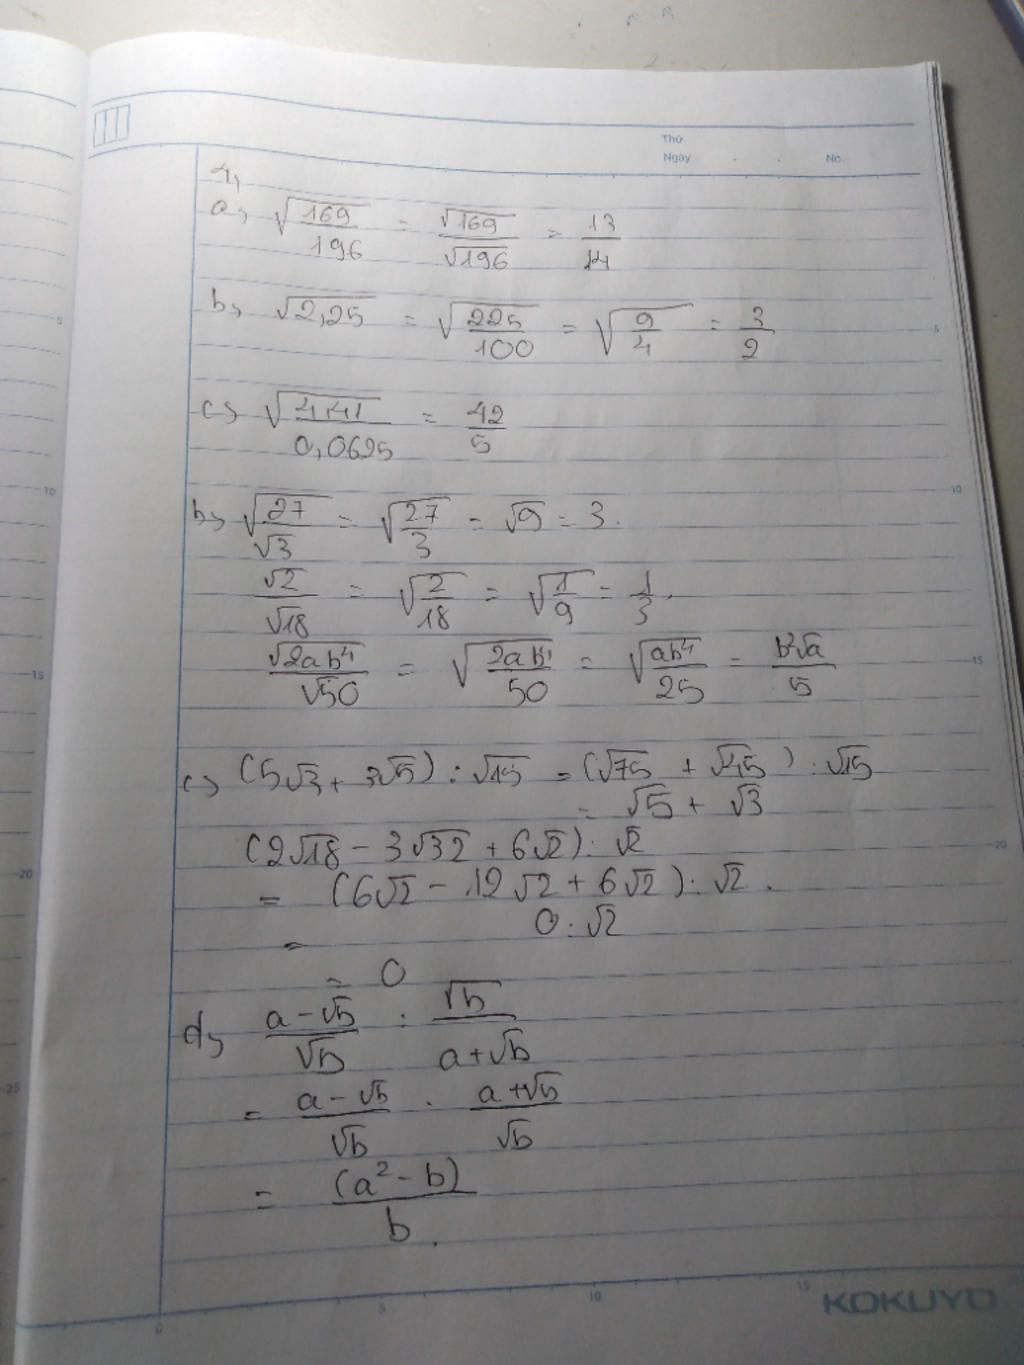 Thứ
Ngày . . No.
1,
a, √(169/196) = √169/√196 = 13/14
b, √2,25 = √(225/100) = √(9/4) = 3/2
c, √(4,41/0,0625) = 42/5
b, √27/√3 = √(27/3) = √9 = 3.
√2/√18 = √(2/18) = √(1/9) = 1/3.
√2ab⁴/√50 = √(2ab⁴/50) = √(ab⁴/25) = b²√a/5
c, (5√3 + 3√5) : √15 = (√75 + √45) : √15
= √5 + √3
(2√18 - 3√32 + 6√2) : √2
= (6√2 - 12√2 + 6√2) : √2.
= 0 : √2
= 0
d, (a-√b)/√b : √b/(a+√b)
= (a-√b)/√b . (a+√b)/√b
= (a² - b)/b.
5 10 15 20 25
5 10 15 20
0 5 10 15
KOKUYO